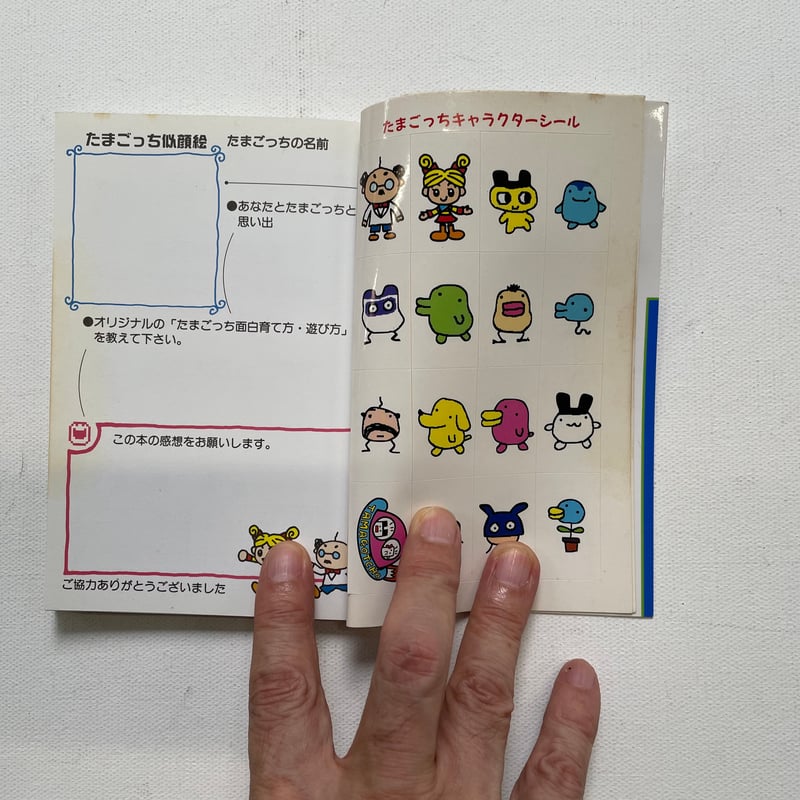 たまごっち似顔絵
たまごっちの名前
●あなたとたまごっちと
思い出
●オリジナルの「たまごっち面白育て方・遊び方」
を教えて下さい。
この本の感想をお願いします。
ご協力ありがとうございました
たまごっちキャラクターシール
TAMAGOTCHI